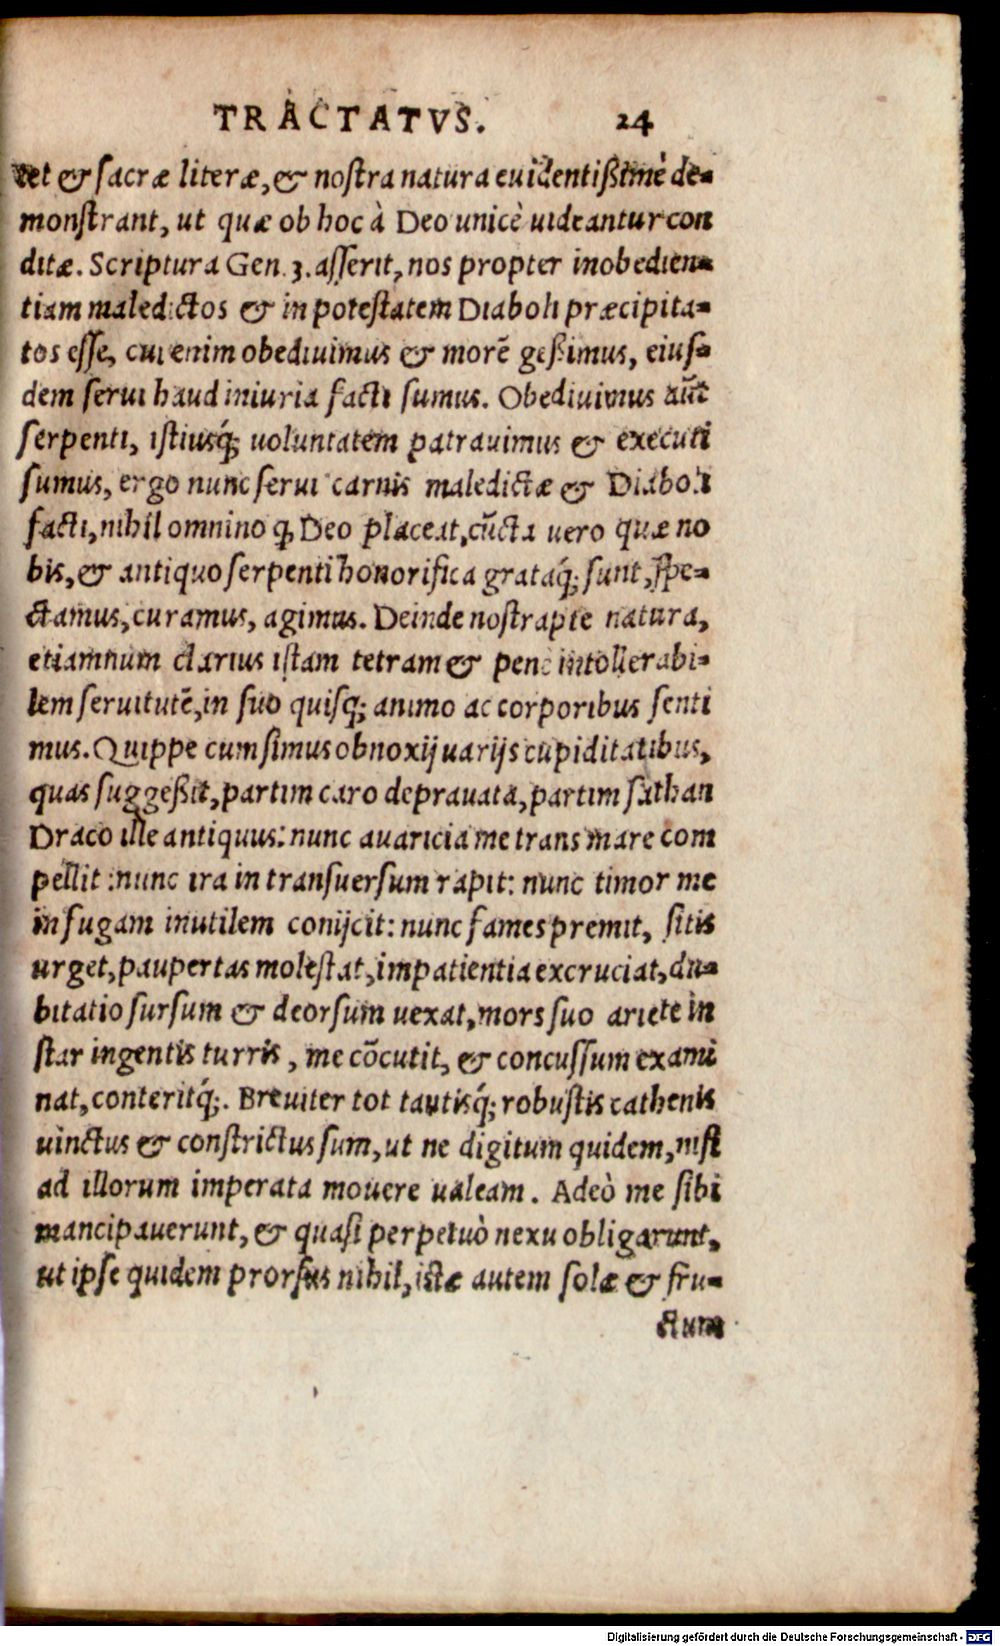 TRACTATVS. 24
tet & sacræ literæ, & nostra natura euidentißimè de-
monstrant, ut quæ ob hoc à Deo unicè uideantur con
ditæ. Scriptura Gen. 3. asserit, nos propter inobedien-
tiam maledictos & in potestatem Diaboli præcipita-
tos esse, cui enim obediuimus & morē geßimus, eius-
dem serui haud iniuria facti sumus. Obediuimus aūt
serpenti, istiusq́; uoluntatem patrauimus & executi
sumus, ergo nunc serui carnis maledictæ & Diaboli
facti, nihil omnino q̃ Deo placeat, cūcta uero quæ no
bis, & antiquo serpenti honorifica grataq́; sunt, spe-
ctamus, curamus, agimus. Deinde nostrapte natura,
etiamnum clarius istam tetram & pene intollerabi-
lem seruitutē, in suo quisq; animo ac corporibus senti
mus. Quippe cum simus obnoxij uarijs cupiditatibus,
quas suggeßit, partim caro deprauata, partim sathan
Draco ille antiquus: nunc auaricia me trans mare com
pellit: nunc ira in transuersum rapit: nunc timor me
in fugam inutilem conijcit: nunc fames premit, sitis
urget, paupertas molestat, impatientia excruciat, du-
bitatio sursum & deorsum uexat, mors suo ariete in
star ingentis turris, me cōcutit, & concussum exami
nat, conteritq́;. Breuiter tot tantisq́; robustis cathenis
uinctus & constrictus sum, ut ne digitum quidem, nisi
ad illorum imperata mouere ualeam. Adeò me sibi
mancipauerunt, & quasi perpetuò nexu obligarunt,
ut ipse quidem prorsus nihil, istæ autem solæ & fru-
ctum
Digitalisierung gefördert durch die Deutsche Forschungsgemeinschaft - DFG